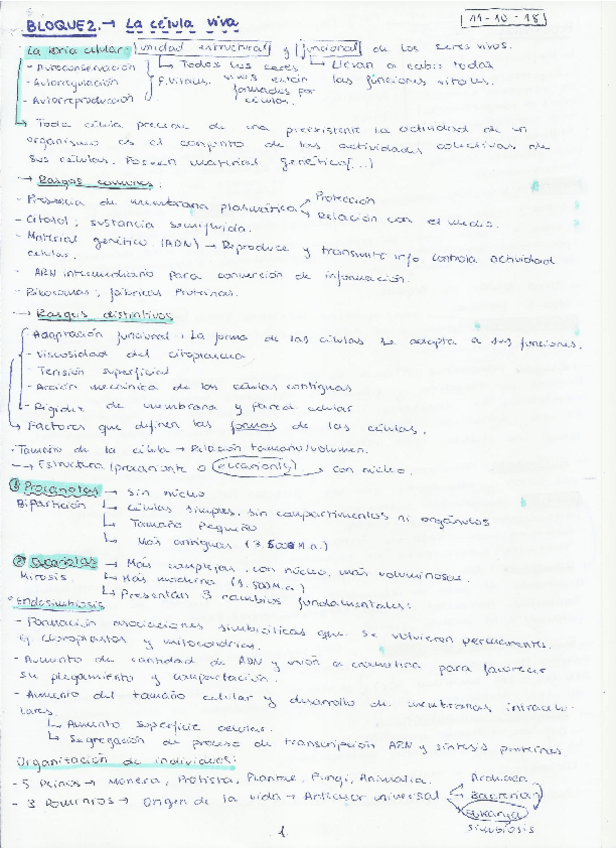 BLOQUE 2. → La célula viva
11-10-18
La teoría celular: unidad estructural y funcional de los seres vivos.
- Autoconservación ↳ Todos los seres ↳ Llevan a cabo todas
- Autorregulación F. Vitales. vivos están las funciones vitales.
- Autorreproducción formados por células.
↳ Toda célula precisa de una preexistente la actividad de un
organismo es el conjunto de las actividades colectivas de
sus células. Poseen material genético (...)
→ Rasgos comunes:
- Presencia de membrana plasmática Protección
Relación con el medio.
- Citosol; sustancia semilíquida.
- Material genético (ADN) → Reproduce y transmite info controla actividad
celular.
- ARN intermediario para conversión de información.
- Ribosomas; fábricas Proteínas.
→ Rasgos distintivos
Adaptación funcional: La forma de las células se adapta a sus funciones.
- Viscosidad del citoplasma
- Tensión superficial
- Acción mecánica de las células contiguas
- Rigidez de membrana y Pared celular
↳ Factores que definen las formas de las células.
· Tamaño de la célula → Relación tamaño/volumen.
→ Estructura (procarionte o eucarionte) → con núcleo.
① Procariotas → Sin núcleo
Bipartición ↳ Células simples, sin compartimentos ni orgánulos
↳ Tamaño Pequeño
↳ Más antiguas (3.500 M.a.)
② Eucariotas → Más complejas, con núcleo, más voluminosas.
Mitosis. ↳ Más moderna (1.500 M.a.)
↳ Presentan 3 cambios fundamentales:
* Endosimbiosis
- Formación asociaciones simbióticas que se volvieron permanentes.
Ej cloroplastos y mitocondrias.
- Aumento de cantidad de ADN y unión a cromatina para favorecer
su plegamiento y compactación.
- Aumento del tamaño celular y desarrollo de membranas intracelu-
lares.
↳ Aumento superficie celular.
↳ Segregación de proceso de transcripción ARN y síntesis proteínas
Organización de individuos:
- 5 Reinos → Monera, Protista, Plantae, Fungi, Animalia.
- 3 Dominios → Origen de la vida → Antecesor universal Archaea
Bacteria
Eukarya
simbiosis
1.